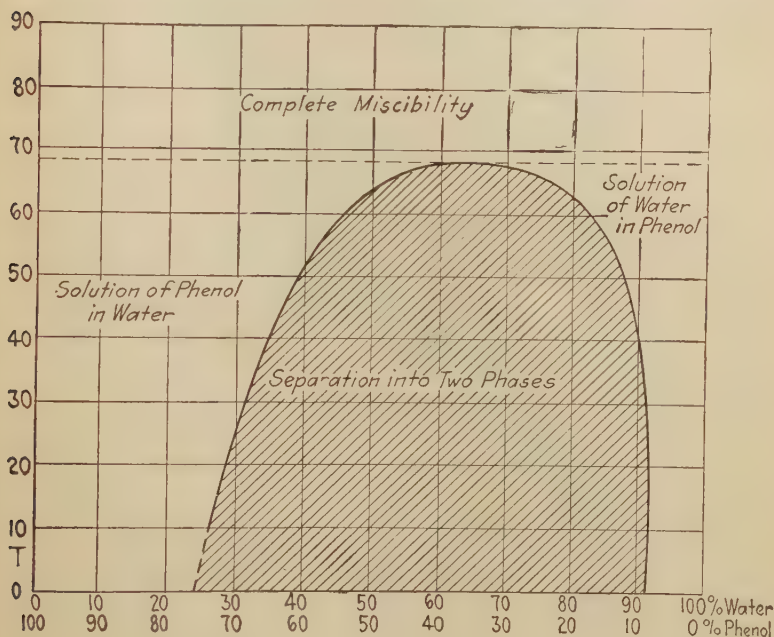 90
80
70
60
50
40
30
20
10
T
0
Complete Miscibility
Solution
of Water
in Phenol
Solution of Phenol
in Water
Separation into Two Phases
0 10 20 30 40 50 60 70 80 90 100% Water
100 90 80 70 60 50 40 30 20 10 0% Phenol